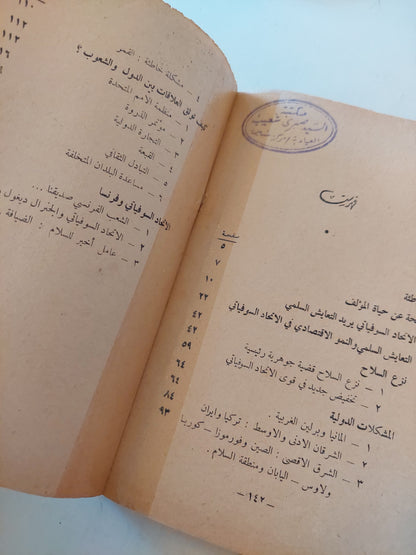 مكتبة
السيد صبري شعيب
فهرست
صفحة
طئة ٥
حة عن حياة المؤلف ٧
الاتحاد السوفياتي يريد التعايش السلمي ١٠
التعايش السلمي والنمو الاقتصادي في الاتحاد السوفياتي ٢٢
نزع السلاح ٤٢
١ – نزع السلاح قضية جوهرية رئيسية ٤٢
٢ – تخفيض جديد في قوى الاتحاد السوفياتي ٥٩
المشكلات الدولية ٦٤
١ – المانيا وبرلين الغربية . ٦٤
٢ – الشرقان الادنى والاوسط : تركيا وايران ٨٤
٣ – الشرق الاقصى : الصين وفورموزا – كوريا ٩٣
ولاوس – اليابان ومنطقة السلام .
– ١٤٢ –
٤ – مشكلة خاطئة : القمر ١١٠
كيف نوثق العلاقات بين الدول والشعوب ؟ ١١٢
١ – منظمة الامم المتحدة ١١٢
٢ – مؤتمر الذروة
٣ – التجارة الدولية
٤ – القبعة
٥ – التبادل الثقافي
٦ – مساعدة البلدان المتخلفة
الاتحاد السوفياتي وفرنسا
١ – الشعب الفرنسي صديقنا ...
٢ – الاتحاد السوفياتي والجنرال ديغول
٣ – عامل أخير للسلام : الضيافة